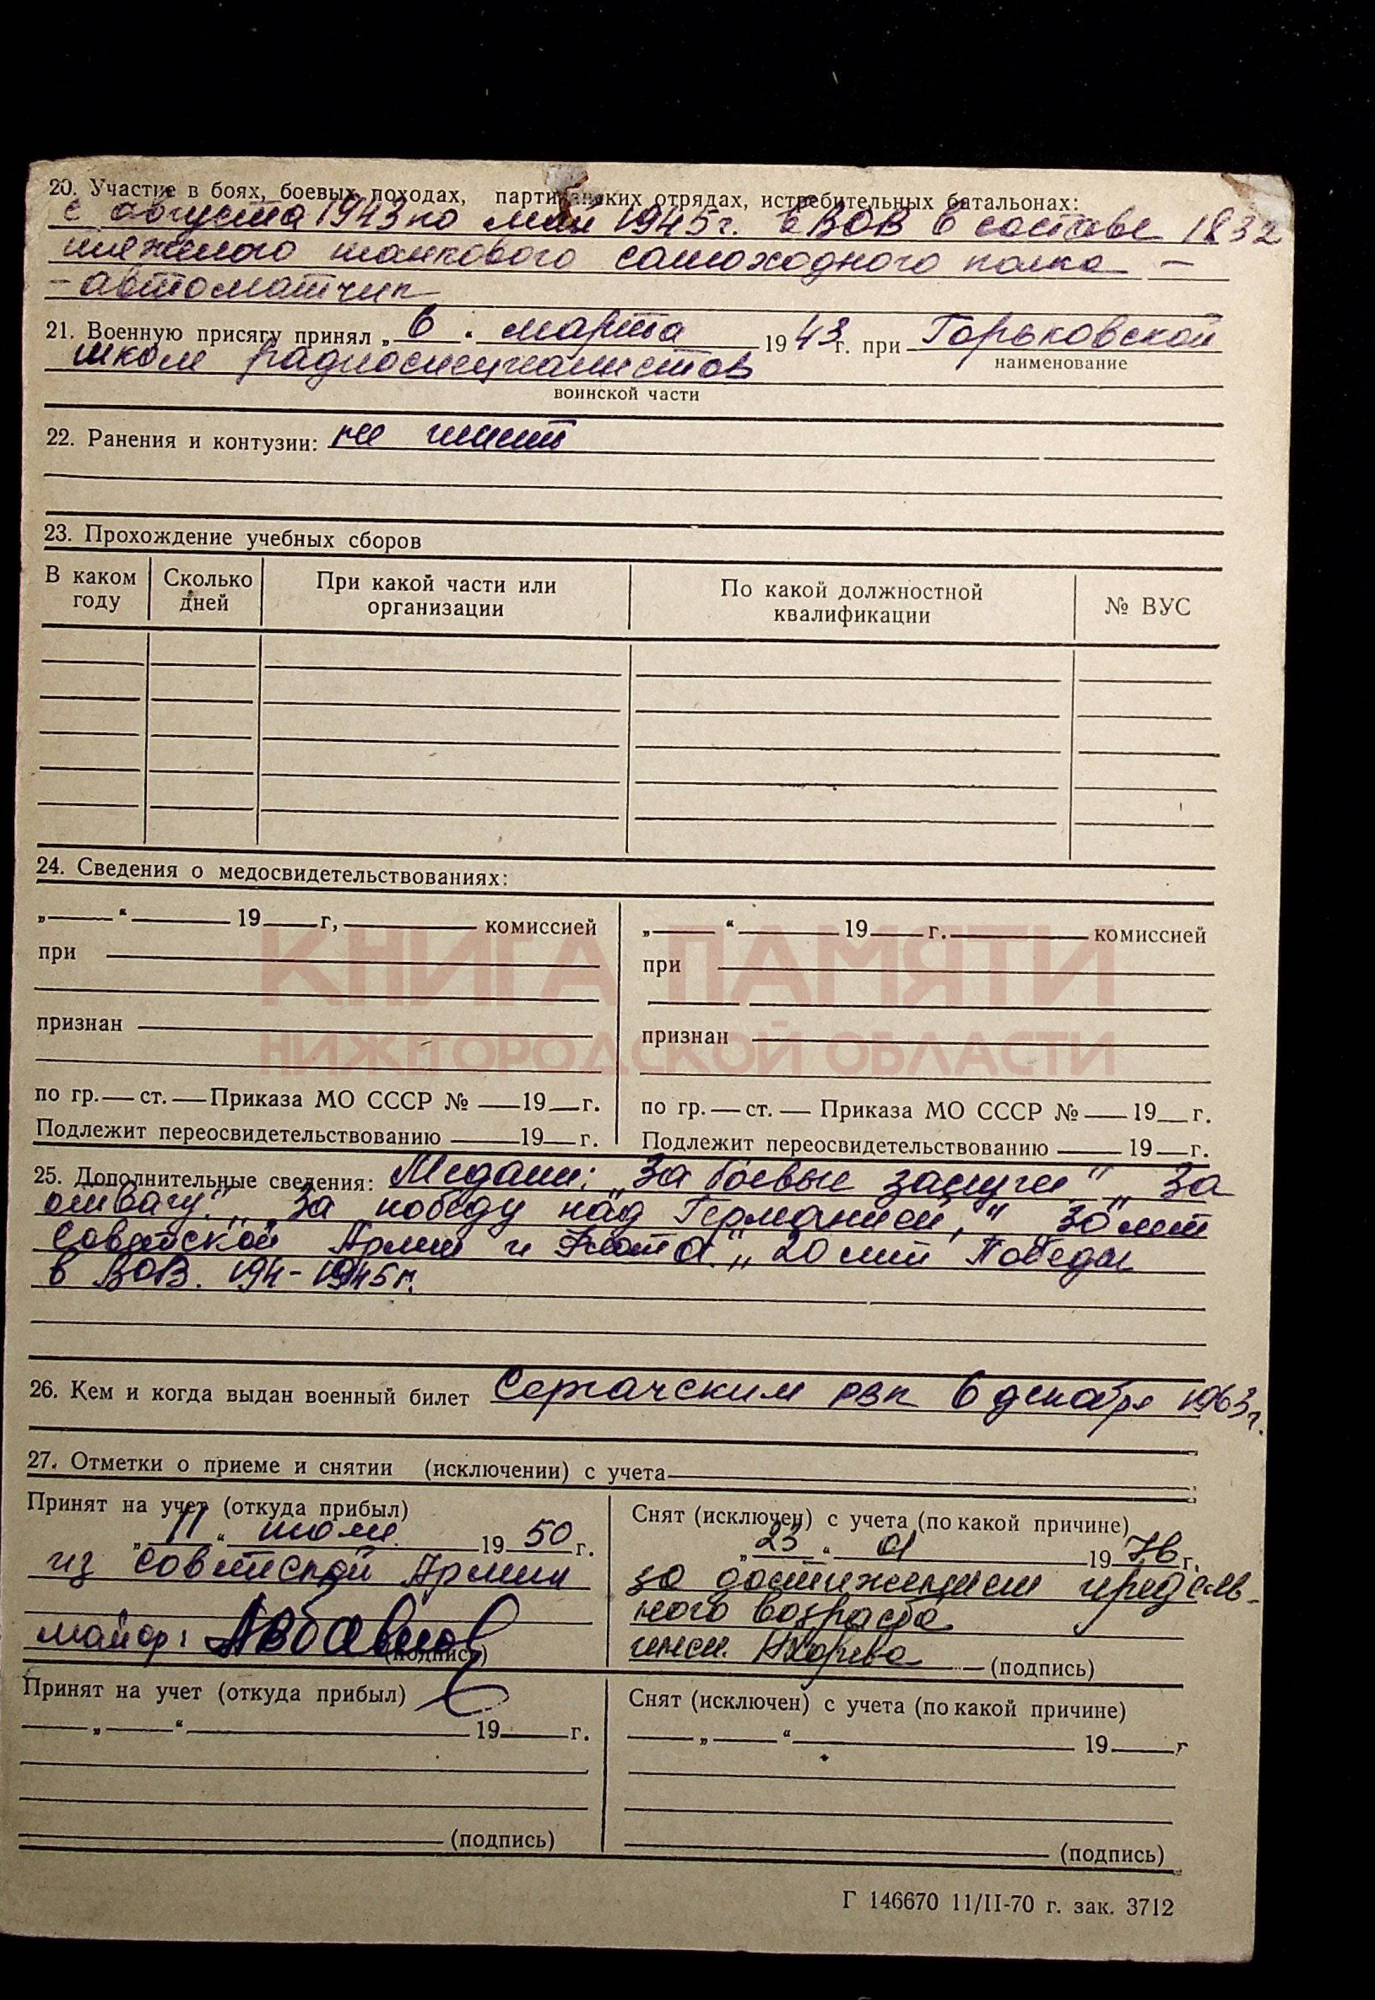 20. Участие в боях, боевых походах, партизанских отрядах, истребительных батальонах:
с августа 1943 по май 1945г. в ВОВ в составе 1832
тяжелого танкового самоходного полка —
- автоматчик
21. Военную присягу принял „ 6 " марта 1943 г. при Горьковской
наименование
школе радиоспециалистов
воинской части
22. Ранения и контузии: не имеет
23. Прохождение учебных сборов
В каком году
Сколько дней
При какой части или организации
По какой должностной квалификации
№ ВУС
24. Сведения о медосвидетельствованиях:
„ “ 19 г, комиссией
при
признан
по гр. ст. Приказа МО СССР № 19 г.
Подлежит переосвидетельствованию 19 г.
„ “ 19 г. комиссией
при
признан
по гр. ст. Приказа МО СССР № 19 г.
Подлежит переосвидетельствованию 19 г.
КНИГА ПАМЯТИ
НИЖЕГОРОДСКОЙ ОБЛАСТИ
25. Дополнительные сведения: Медали: „За боевые заслуги" „За
отвагу", „За победу над Германией," 30 лет
Советской Армии и Флота", „20 лет Победы
в ВОВ. 194-1945г.
26. Кем и когда выдан военный билет Сергачским РВК 6 декабря 1963г.
27. Отметки о приеме и снятии (исключении) с учета
Принят на учет (откуда прибыл)
„ 11 “ июля 1950 г.
из Советской Армии
майор:
(подпись)
Снят (исключен) с учета (по какой причине)
„ 23 “ 01 1976 г.
за достижением предель-
ного возраста
(подпись)
Принят на учет (откуда прибыл)
„ “ 19 г.
(подпись)
Снят (исключен) с учета (по какой причине)
„ “ 19 г
(подпись)
Г 146670 11/II-70 г. зак. 3712